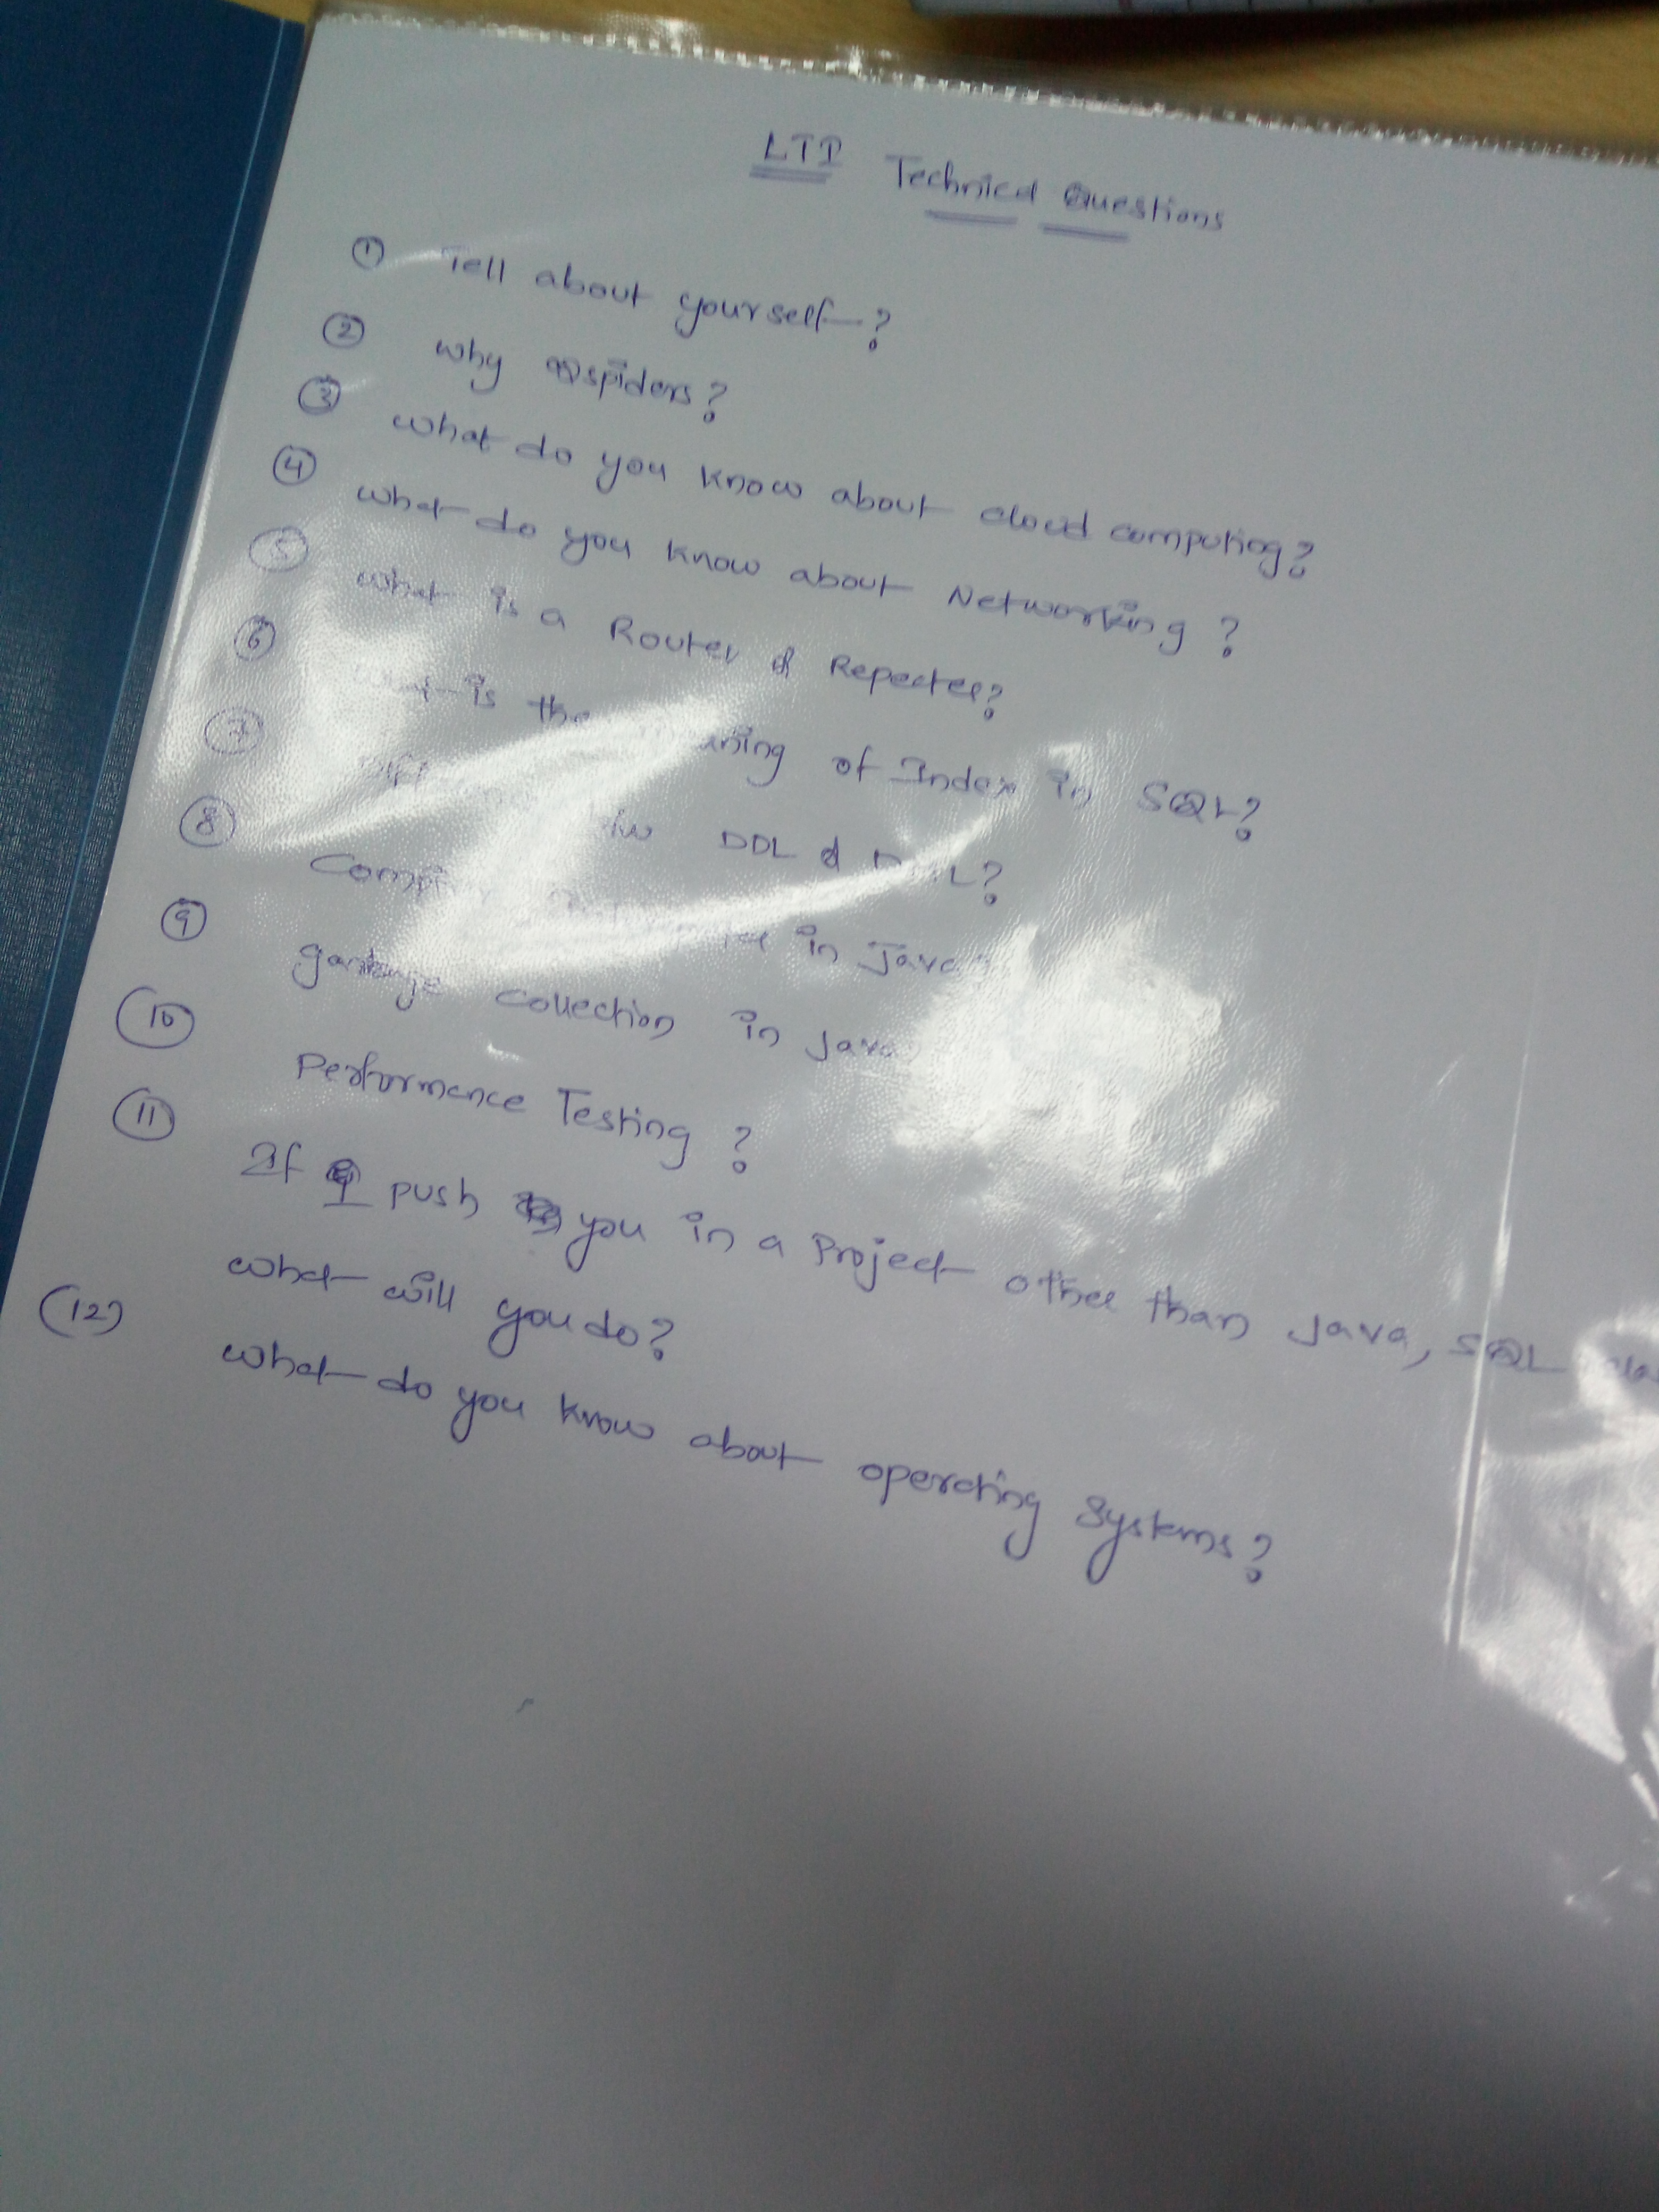 LTI Technical Questions
① Tell about yourself?
② why Qspiders?
③ what do you know about cloud computing?
④ what do you know about Networking?
⑤ what is a Router & Repeater?
⑥ is the of Index in SQL?
⑦ DDL & DML?
⑧ in Java
⑨ garbage collection in java
⑩ Performance Testing?
⑪ If I push you in a Project other than java, SQL
what will you do?
(12) what do you know about operating systems?